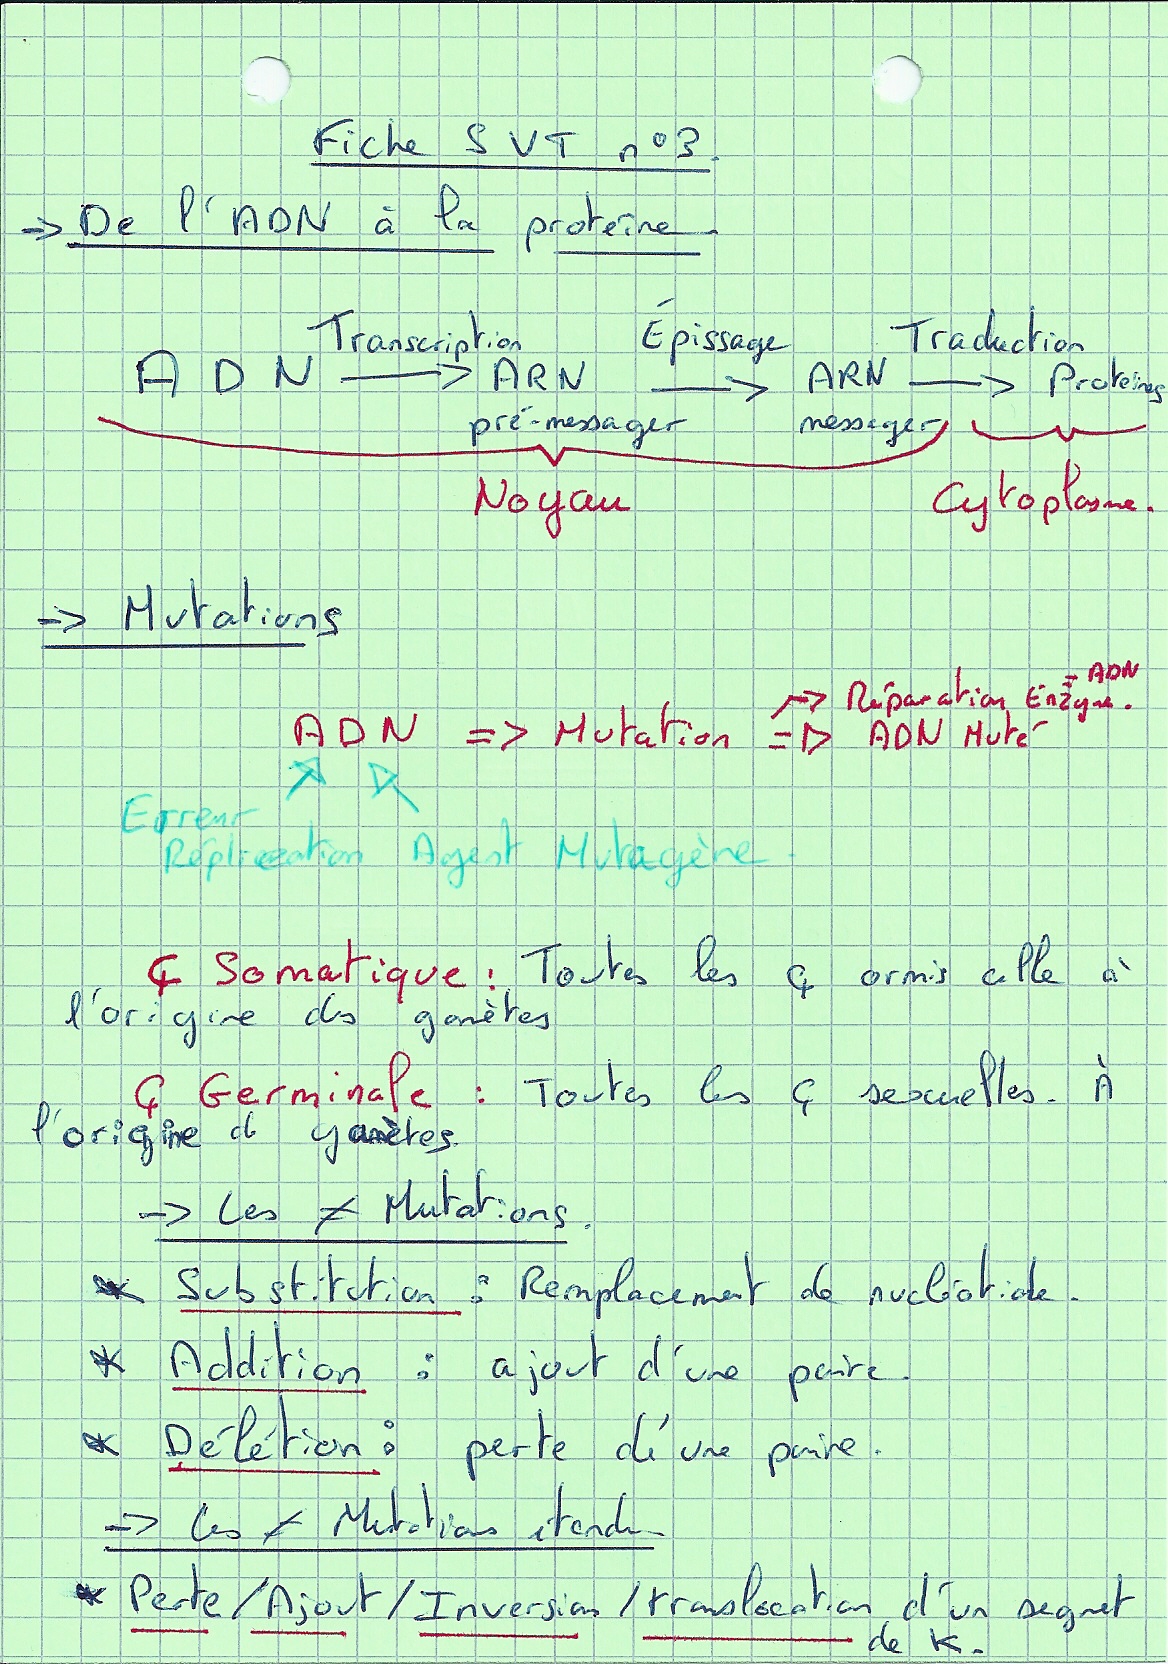 Fiche SVT n°3.
-> De l'ADN à la protéine.
Transcription Épissage Traduction
ADN -> ARN -> ARN -> Protéines
pré-messager messager
Noyau Cytoplasme.
-> Mutations
-> Réparation Enzyme. = ADN
ADN => Mutation => ADN Muté
Erreur
Réplication Agent Mutagène.
Ç Somatique : Toutes les ç ormis celle à
l'origine des gamètes
Ç Germinale : Toutes les ç sexuelles. À
l'origine de gamètes.
-> Les ≠ Mutations.
* Substitution : Remplacement de nucléotide.
* Addition : ajout d'une paire.
* Délétion : perte d'une paire.
-> Les ≠ Mutations étendu
* Perte/Ajout/Inversion/translocation d'un segnet
de K.